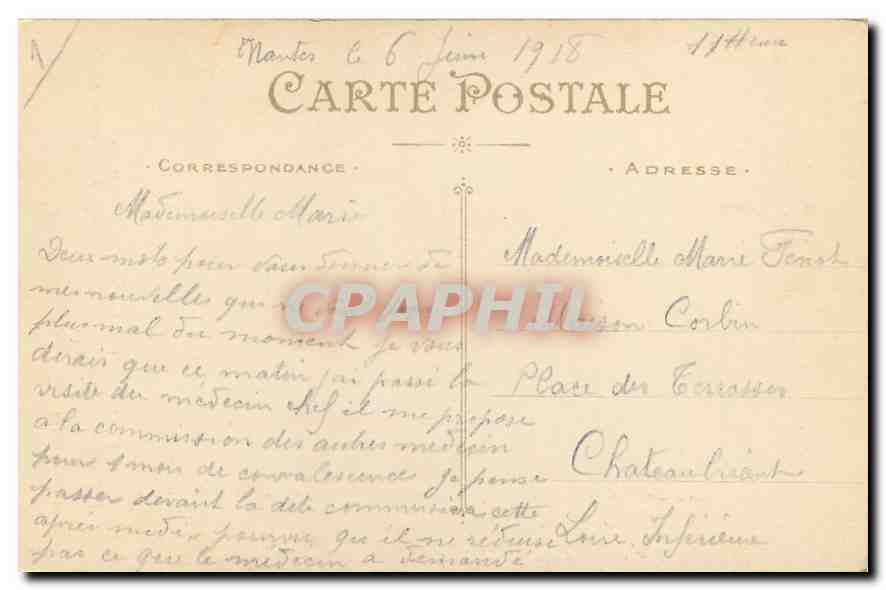 Nantes le 6 Juin 1918 11 Heure
CARTE POSTALE
CORRESPONDANCE
ADRESSE
Mademoiselle Marie
Deux mots pour vous donner de
mes nouvelles qui
plus mal du moment je vous
dirais que ce matin j'ai passé la
visite du médecin chef il me propose
a la commission des autres medecin
pour 1 mois de convalescences Je pense
passer devant la dite commission cette
après midi pourvu qu il ne réduise
pas ce que le médecin a demandé
Mademoiselle Marie
Maison Corbin
Place des Terrasses
Chateaubriant
Loire Inférieure
CPAPHIL